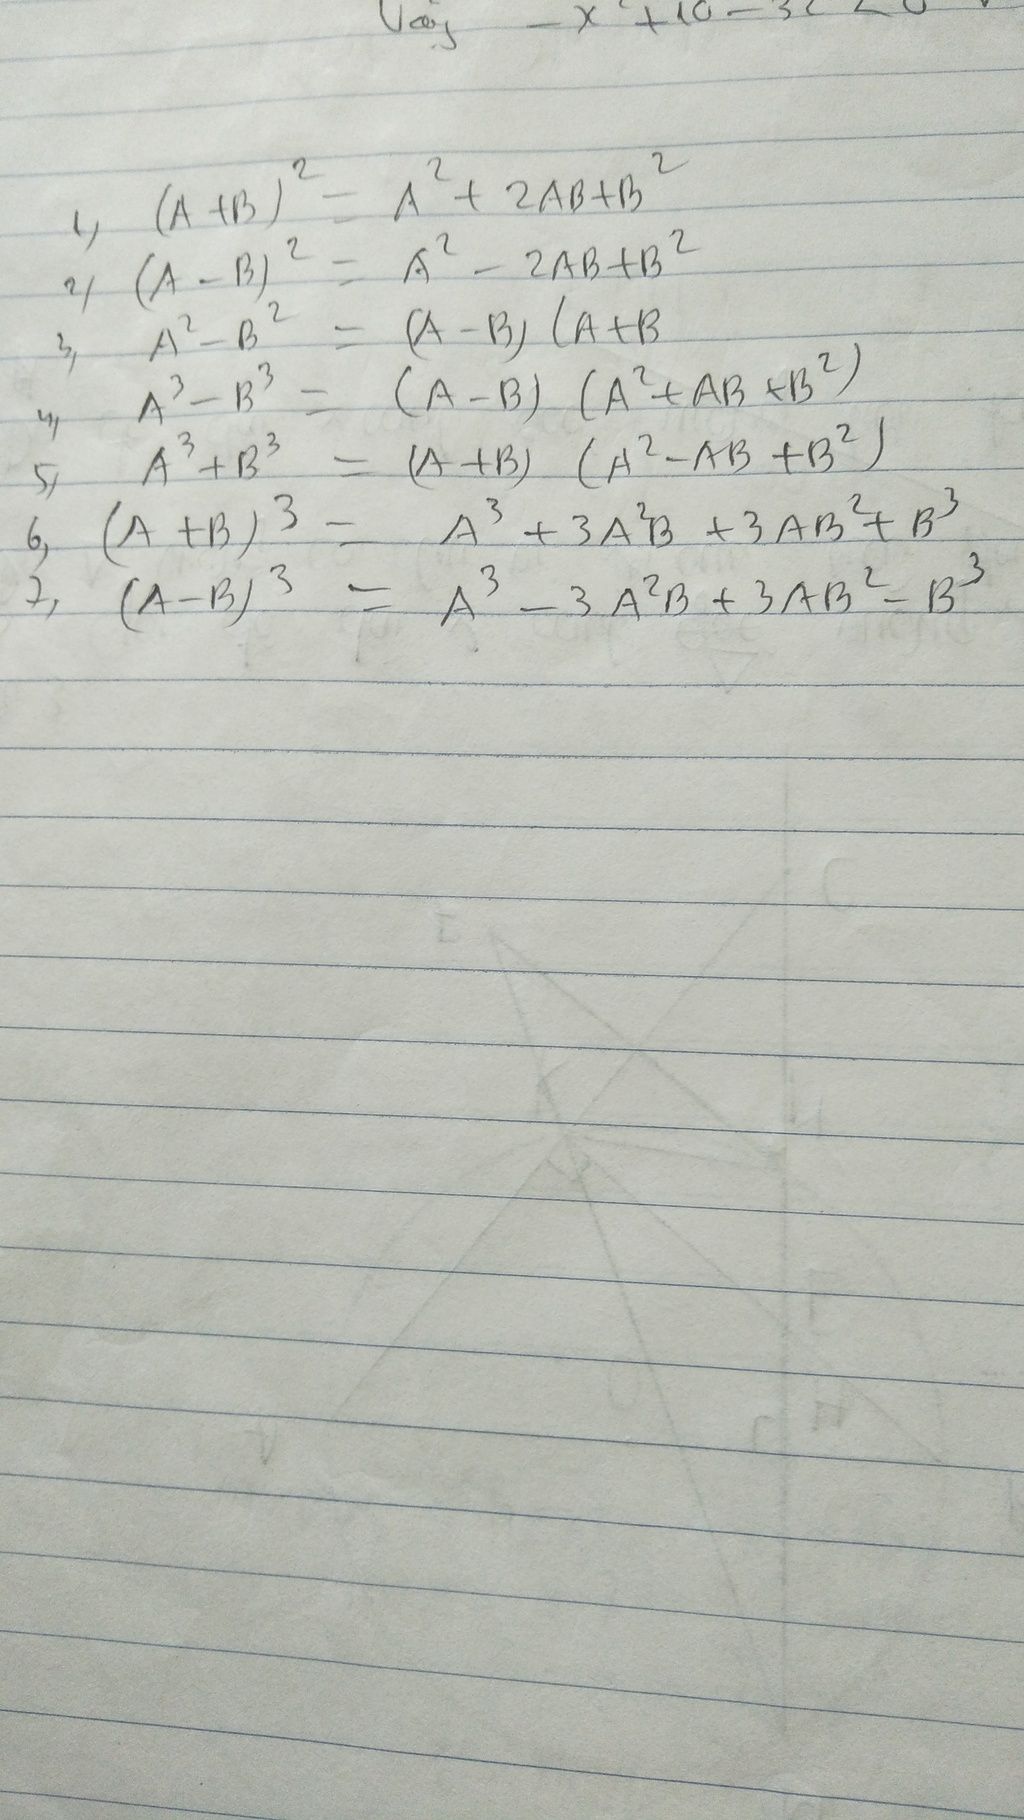 Vậy -x²+10
1, (A+B)² = A² + 2AB+B²
2, (A-B)² = A² - 2AB+B²
3, A²-B² = (A-B) (A+B
4, A³-B³ = (A-B) (A²+AB+B²)
5, A³+B³ = (A+B) (A²-AB+B²)
6, (A+B)³ = A³ + 3A²B + 3AB² + B³
7, (A-B)³ = A³ - 3A²B + 3AB² - B³